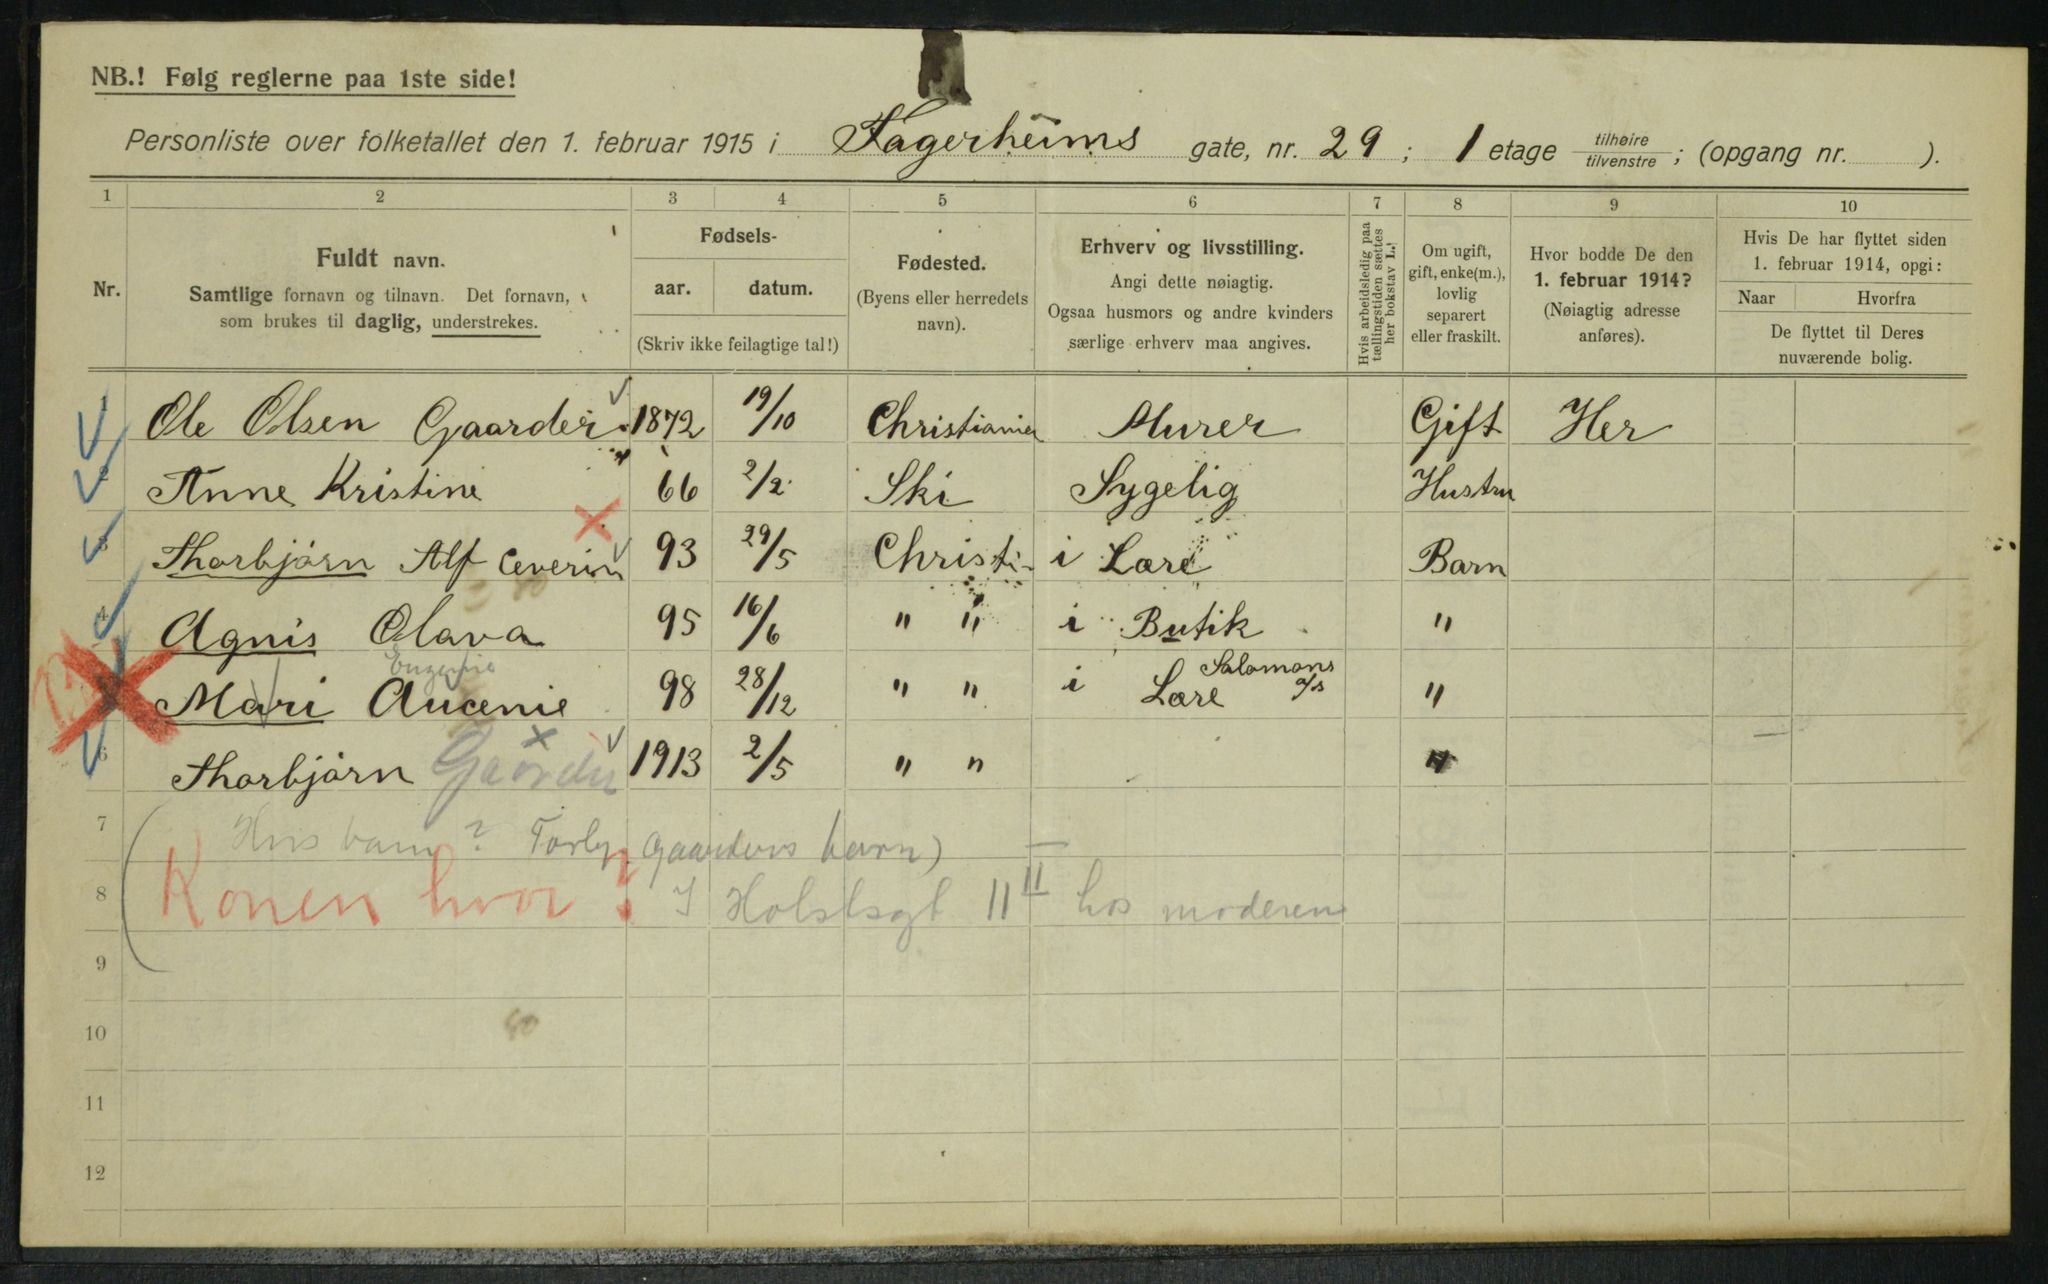 NB.! Følg reglerne paa 1ste side!
Personliste over folketallet den 1. februar 1915 i Fagerheims gate, nr. 29; 1 etage tilhøire/tilvenstre; (opgang nr. ).
1 2 3 4 5 6 7 8 9 10
Nr.
Fuldt navn.
Samtlige fornavn og tilnavn. Det fornavn,
som brukes til daglig, understrekes.
Fødsels-
aar. datum.
(Skriv ikke feilagtige tal!)
Fødested.
(Byens eller herredets
navn).
Erhverv og livsstilling.
Angi dette nøiagtig.
Ogsaa husmors og andre kvinders
særlige erhverv maa angives.
Hvis arbeidsledig paa
tællingstiden sættes
her bokstav L.!
Om ugift,
gift, enke(m.),
lovlig
separert
eller fraskilt.
Hvor bodde De den
1. februar 1914?
(Nøiagtig adresse
anføres).
Hvis De har flyttet siden
1. februar 1914, opgi:
Naar Hvorfra
De flyttet til Deres
nuværende bolig.
1 Ole Olsen Gaarder 1872 19/10 Christiania Murer Gift Her
2 Anne Kristine 66 2/2 Ski Sygelig Hustru
3 Thorbjørn Alf Ceverin 93 29/5 Christi- i Lære Barn
4 Agnis Olava 95 16/6 " " i Butik "
Eugenie
Mari Aucenie 98 28/12 " " i Lære Salomons a/s "
6 Thorbjørn Gaarder 1913 2/5 " " "
7 Hvis barn? Torbj. Gaarders barn)
8 Konen hvor? I Holstsgt 11 II hos moderen
9
10
11
12